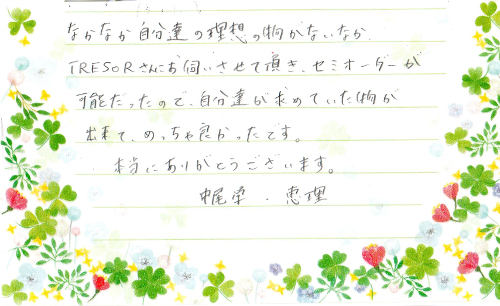 なかなか自分達の理想の物がないなか、
TRESORさんにお伺いさせて頂き、セミオーダーが
可能だったので、自分達が求めていた物が
出来て、めっちゃ良かったです。
本当にありがとうございます。
・恵理